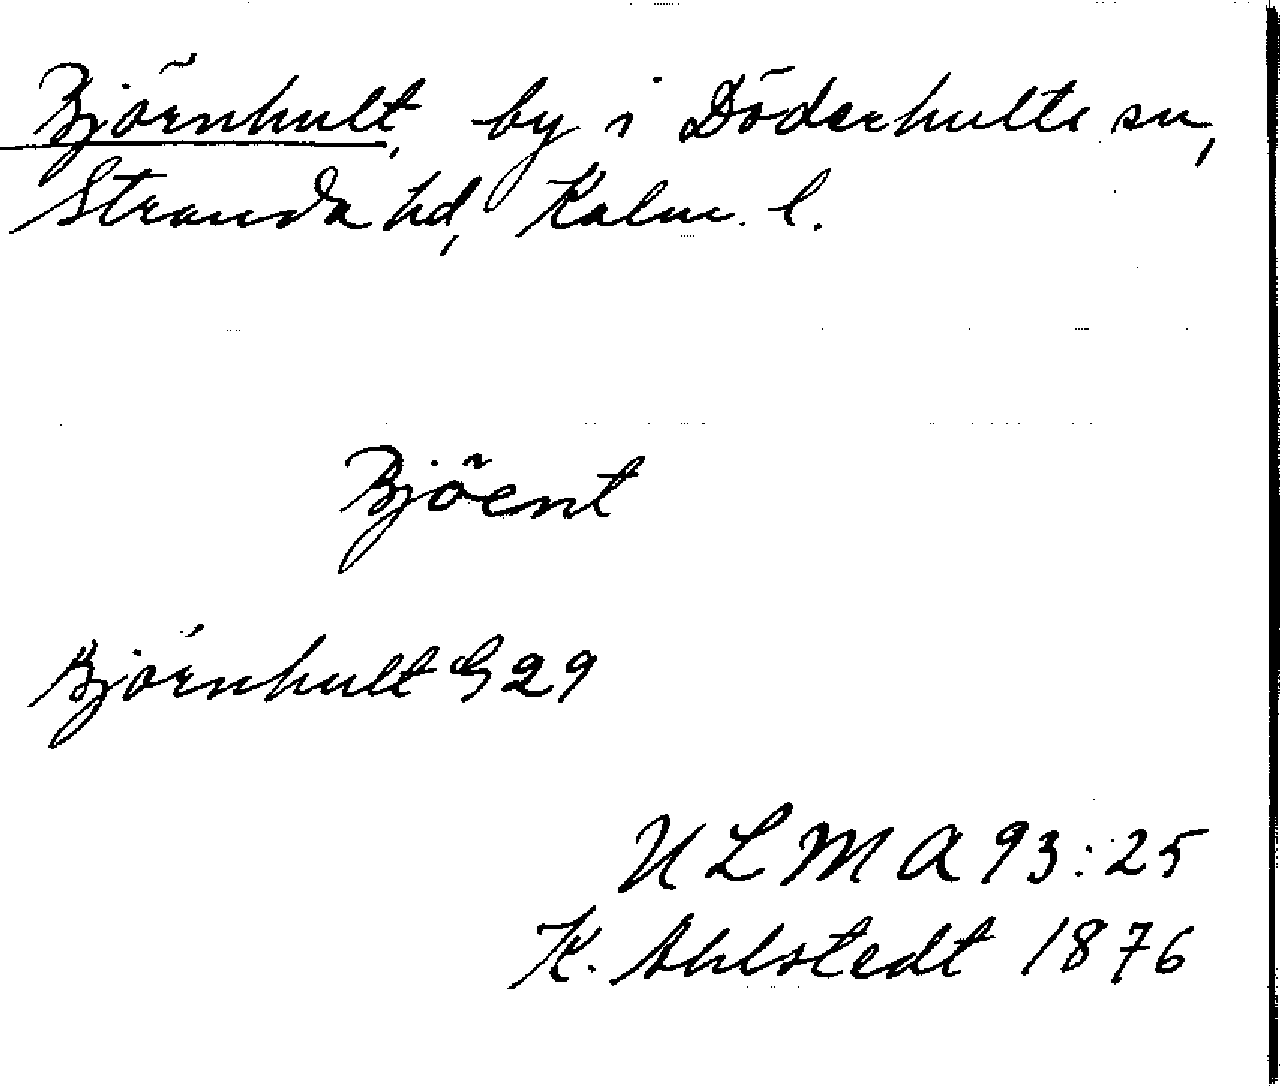 Björnhult, by i Döderhults sn,
Stranda hd, Kalm. l.
Bjöent
Björnhult G 29
ULMA 93:25
K. Ahlstedt 1876